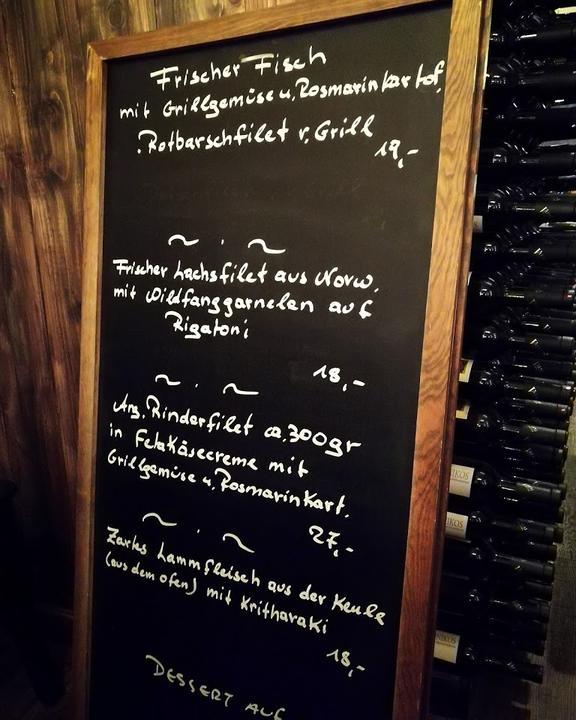 Frischer Fisch
mit Grillgemüse u. Rosmarinkartof.
Rotbarschfilet v. Grill
19,-
~ . ~
Frischer Lachsfilet aus Norw.
mit Wildfanggarnelen auf
Rigatoni
18,-
~ . ~
Arg. Rinderfilet ca. 300gr
in FetaKäsecreme mit
Grillgemüse u. Rosmarinkart.
27,-
~ . ~
Zartes Lammfleisch aus der Keule
(aus dem Ofen) mit Kritharaki
18,-
DESSERT AUF